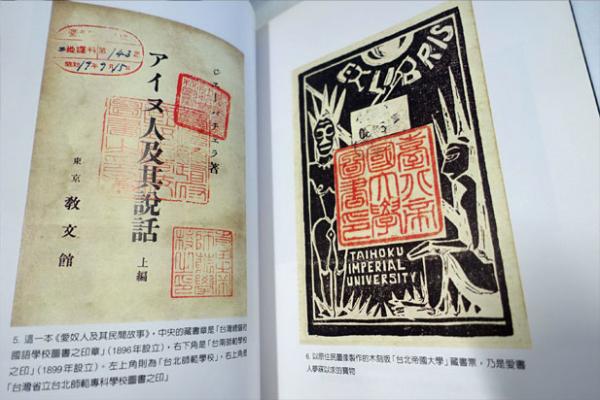 第143号
昭和19年9月15日
ジヨン・バチエラ著
アイヌ人及其説話
上編
東京 教文館
5. 這一本《愛奴人及其民間故事》，中央的藏書章是「台灣總督府
國語學校圖書之印章」（1896年設立），右下角是「台南師範學校
之印」（1899年設立），左上角則為「台北師範學校」，右上角是
「台灣省立台北師範專科學校圖書之印」
EX LIBRIS
臺北帝
國大學
圖書印
TAIHOKU
IMPERIAL
UNIVERSITY
6. 以原住民圖像製作的木刻版「台北帝國大學」藏書票，乃是愛書
人夢寐以求的寶物